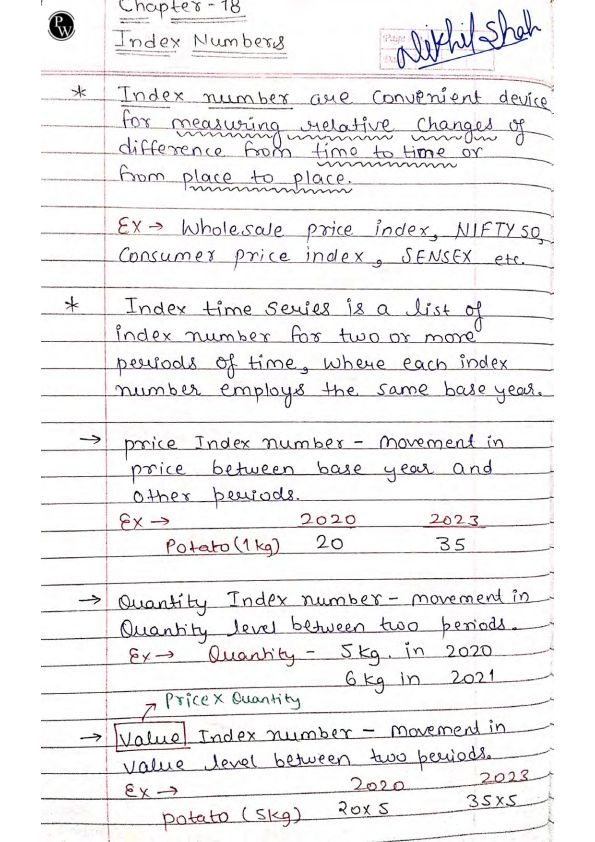 Chapter-18
PW
Index Numbers
Nikhil Shah
* Index number are convenient device
for measuring relative changes of
difference from time to time or
from place to place.
Ex → Wholesale price index, NIFTY 50,
Consumer price index, SENSEX etc.
* Index time series is a list of
index number for two or more
periods of time, where each index
number employs the same base year.
→ price Index number - movement in
price between base year and
other periods.
Ex → 2020 2023
Potato (1kg) 20 35
→ Quantity Index number - movement in
Quantity level between two periods.
Ex → Quantity - 5kg. in 2020
6 kg in 2021
Price x Quantity
→ Value Index number - movement in
value level between two periods.
Ex → 2020 2023
potato (5kg) 20x5 35x5